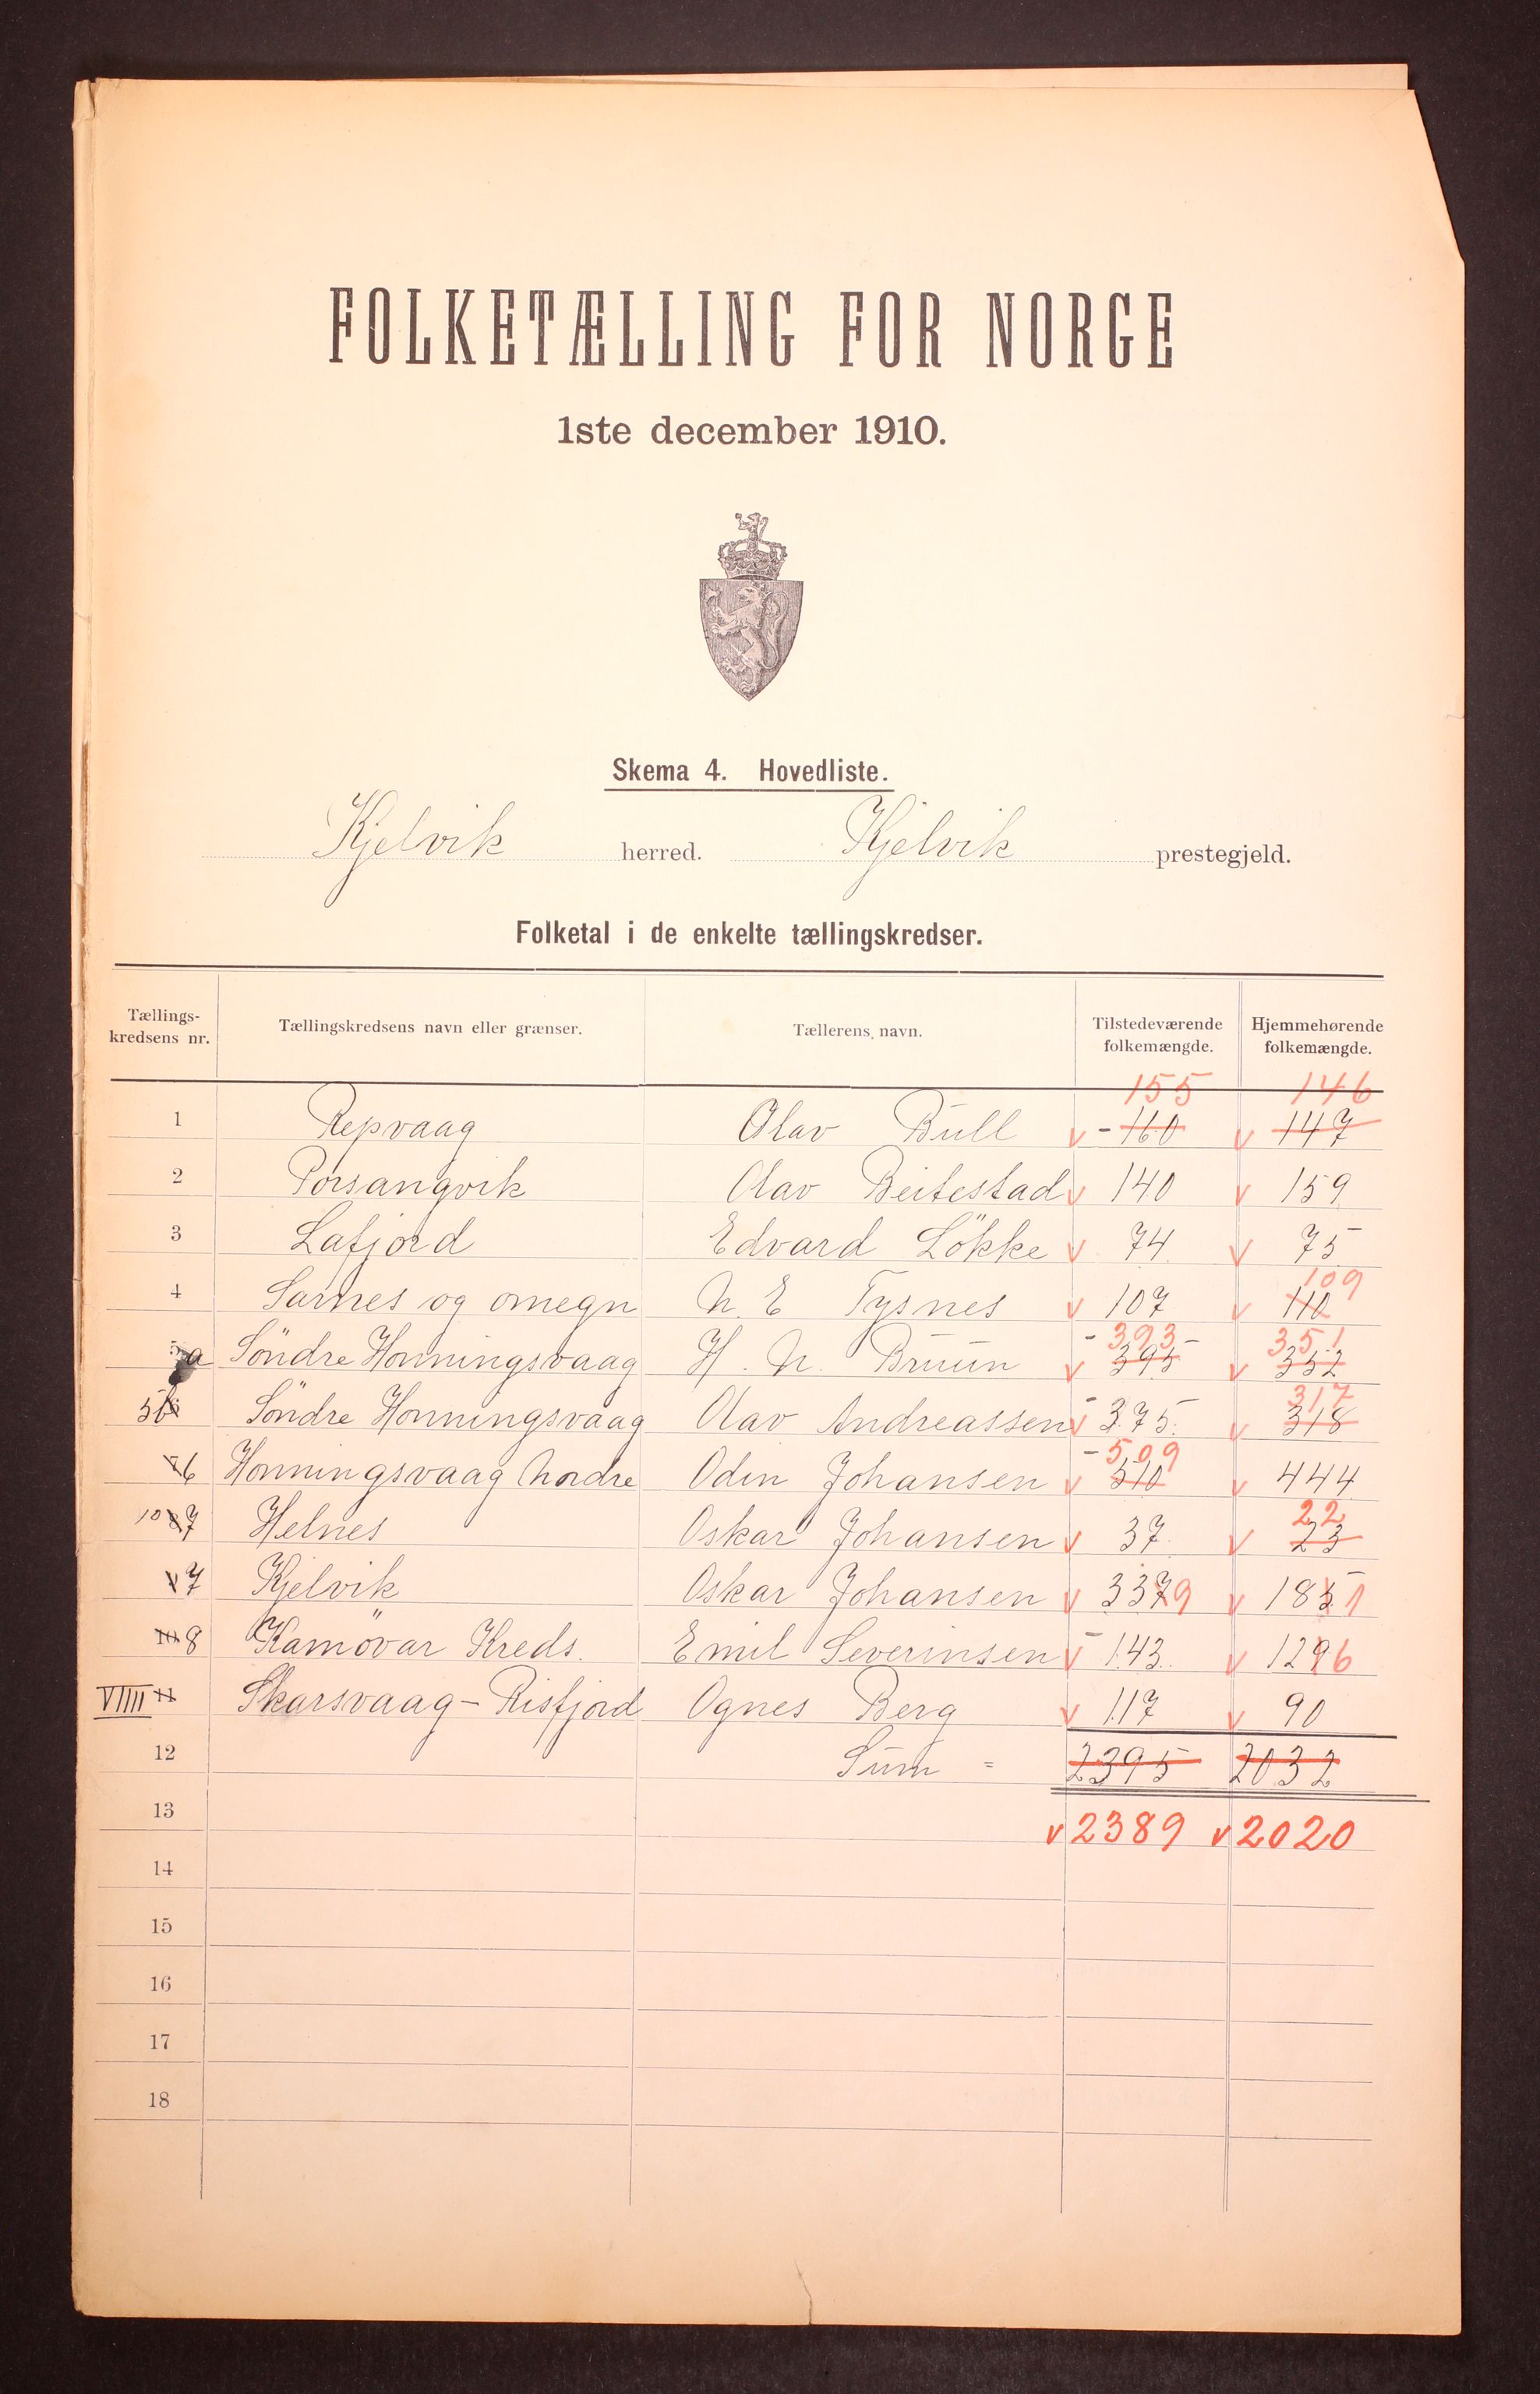 FOLKETÆLLING FOR NORGE
1ste december 1910.
Skema 4. Hovedliste.
Kjelvik herred. Kjelvik prestegjeld.
Folketal i de enkelte tællingskredser.
Tællings-kredsens nr. Tællingskredsens navn eller grænser. Tællerens navn. Tilstedeværende folkemængde. Hjemmehørende folkemængde.
155 146
1 Repvaag Olav Bull v - 160 v 147
2 Porsangvik Olav Beitestad v 140 v 159
3 Lafjord Edvard Lökke v 74 v 75
109
4 Sarnes og omegn N. E Tysnes v 107 v 110
- 393 - 351
5a Söndre Honningsvaag H. N. Bruun v 395 v 352
317
5b Söndre Honningsvaag Olav Andreassen v 375. v 318
- 509
7 6 Honningsvaag Nordre Odin Johansen v 510 v 444
22
10 8 7 Helnes Oskar Johansen v 37 v 23
7 Kjelvik Oskar Johansen v 3379 v 1851
10 8 Kamövær Kreds. Emil Severinsen v 143 v 1296
VIIII 11 Skarsvaag - Risfjord Ognes Berg v 117 v 90
12 Sum = 2395 2032
13 v 2389 v 2020
14
15
16
17
18